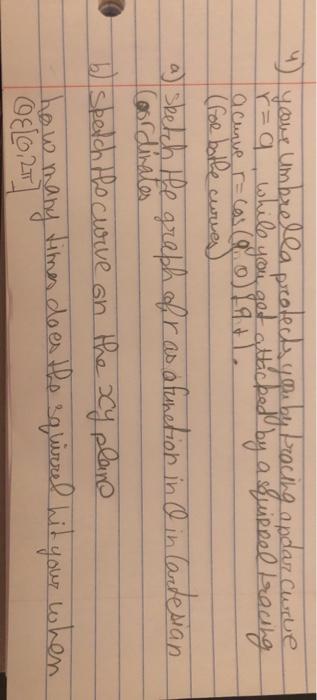 4) your umbrella protects you by tracing a polar curve
r = 9, while you get attacked by a squirrel tracing
a curve r = cos(9·θ) + 9 + 1.
(for both curves)
a) Sketch the graph of r as a function in θ in Cartesian
Coordinates
b) Sketch the curve on the xy plane
how many times does the squirrel hit your when
θ∈[0,2π]